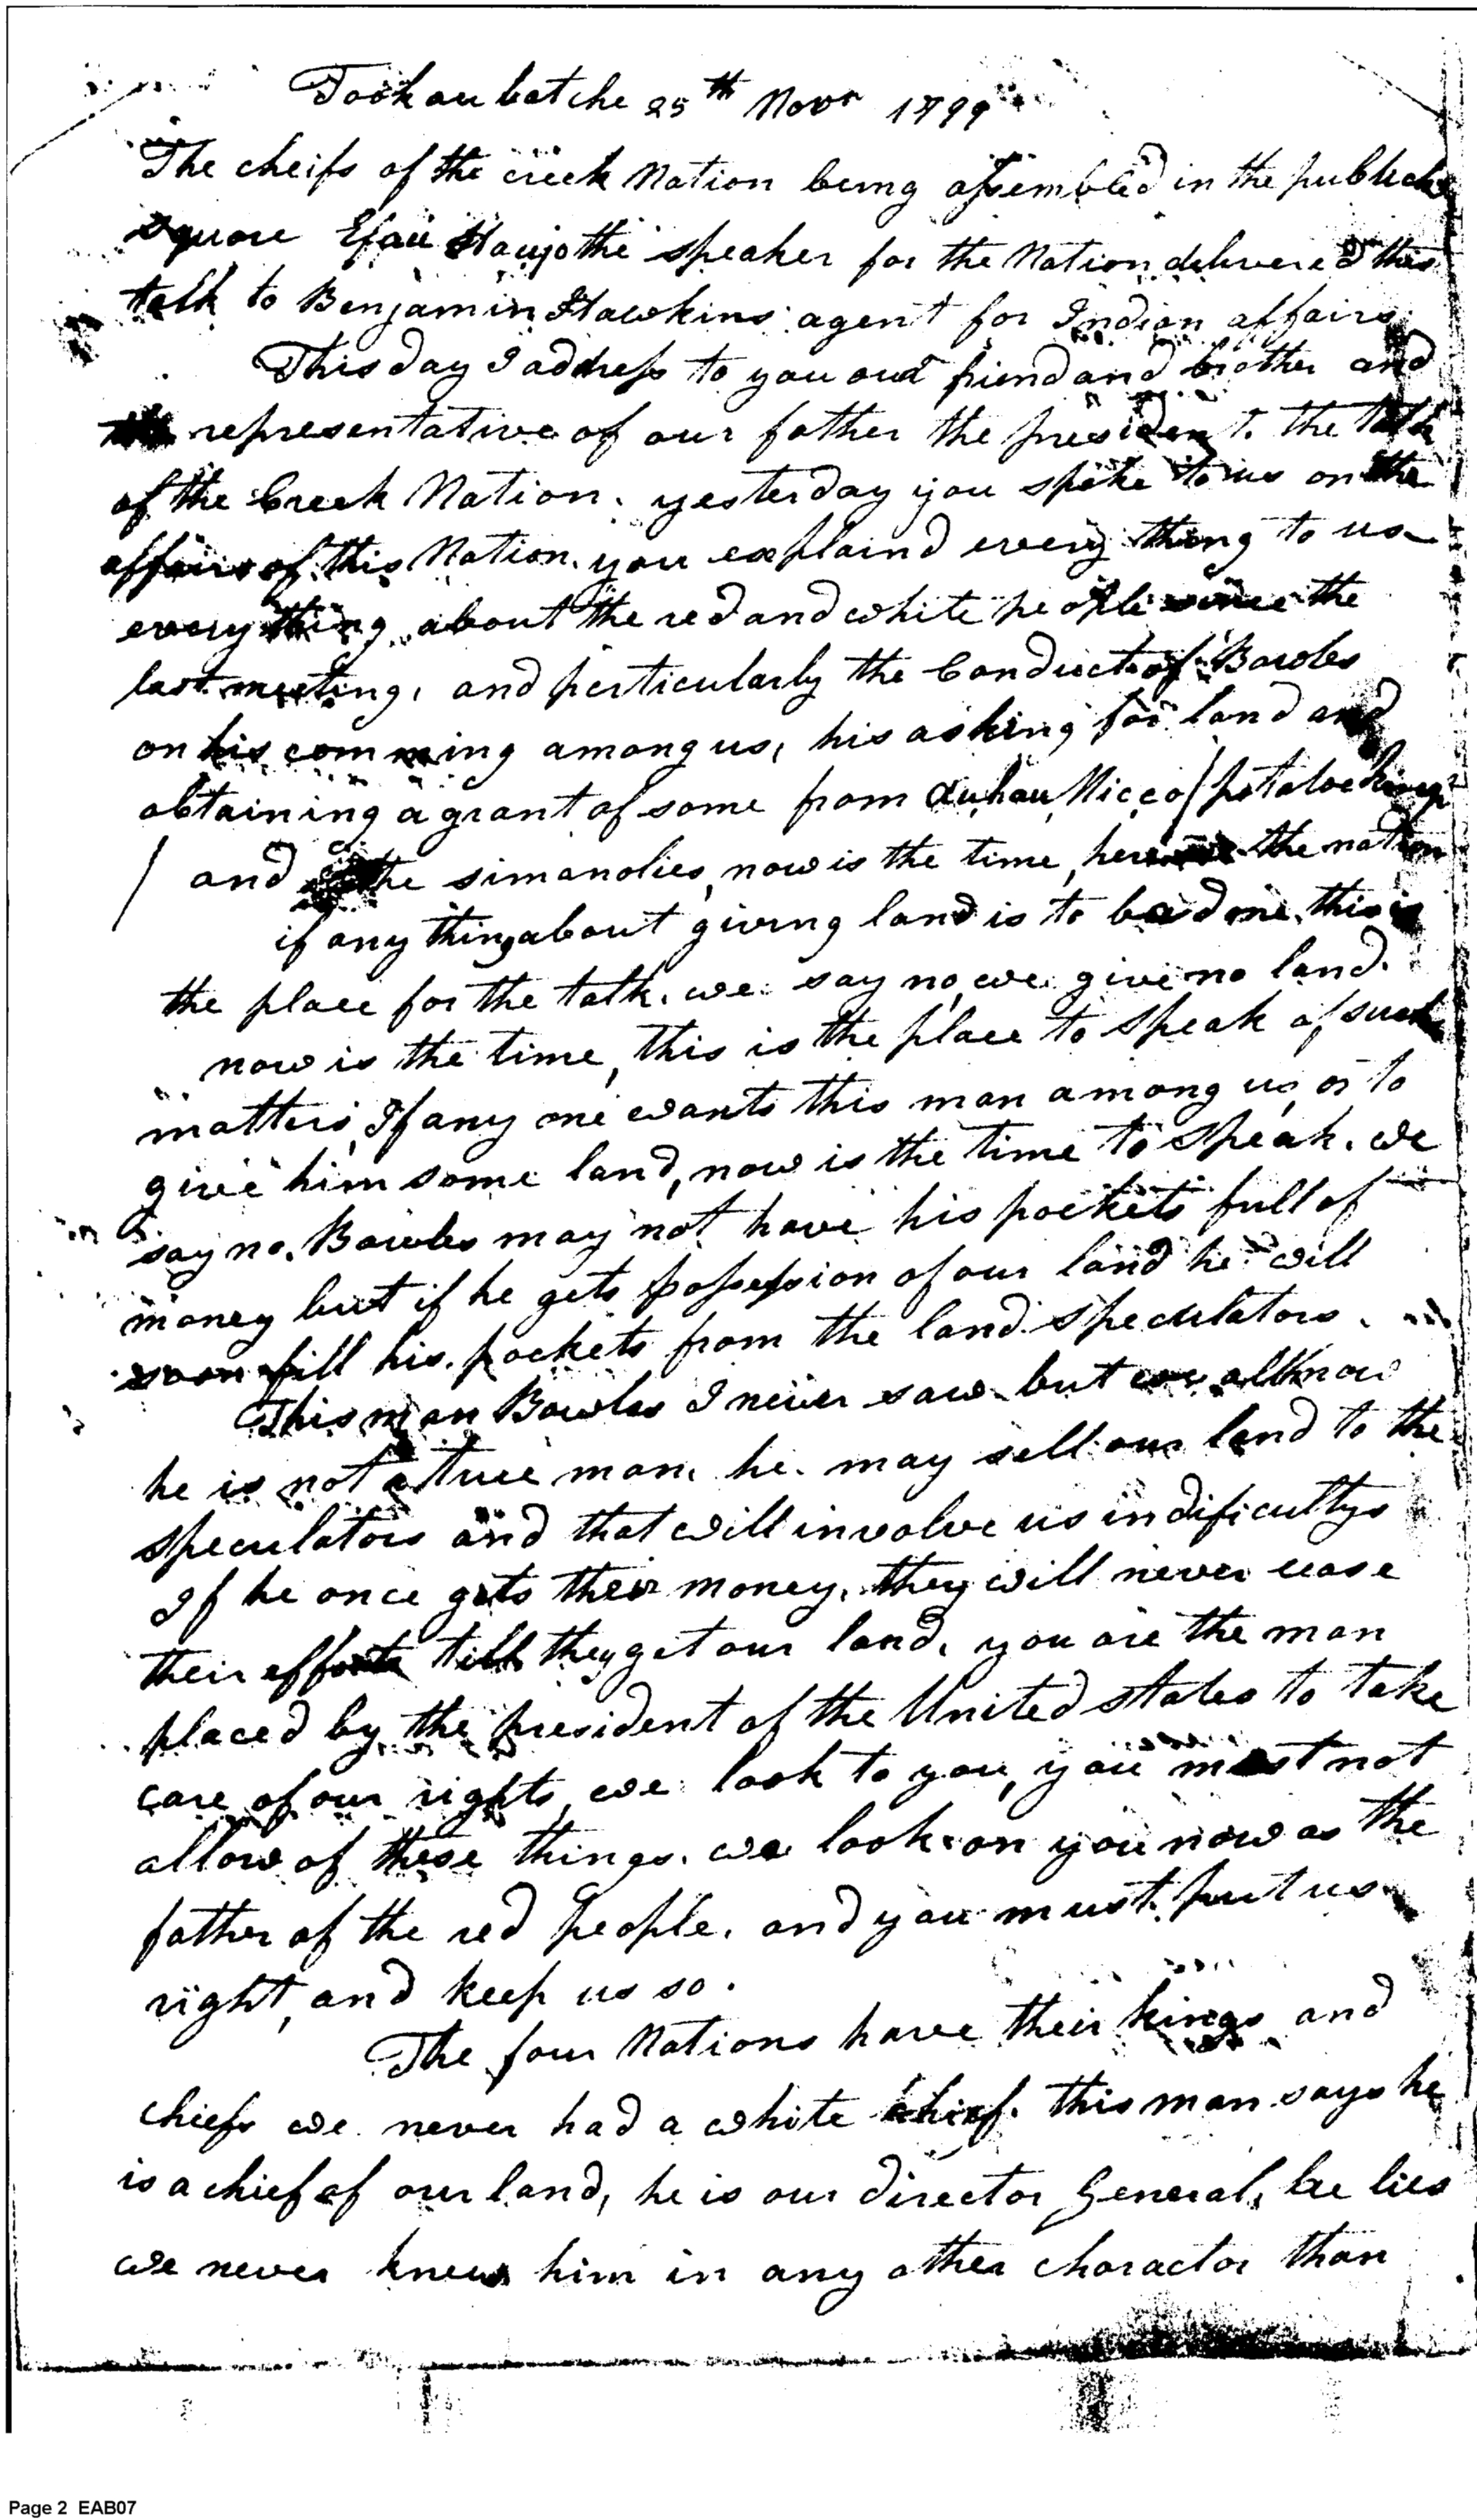 Tookaubatche 25th Novr 1799
The cheifs of the creek Nation being assembled in the publick
square Efau Haujo the speaker for the Nation delivered this
talk to Benjamin Hawkins agent for Indian affairs
This day I address to you our friend and brother and
representative of our father the president. the talk
of the Creek Nation. yesterday you spoke to us on the
affairs of this Nation. you explaind every thing to us
every thing about the red and white people since the
last meeting, and perticularly the Conduct of Bowles
on his comming among us, his asking for land and
obtaining a grant of some from Micco
/ and the simanolies, now is the time, here the nation
if any thing about giving land is to be done, this is
the place for the talk. we say no, we give no land.
now is the time, this is the place to speak of such
matters, If any one wants this man among us, or to
give him some land, now is the time to speak. we
say no. Bowles may not have his pockets full of
money but if he gets possession of our land he will
soon fill his pockets from the land speculators.
This man Bowles I never saw but we all know
he is not a true man, he may sell our land to the
speculators and that will involve us in dificultys
If he once gets their money, they will never cease
their efforts till they get our land, you are the man
placed by the president of the United states to take
care of our rights, we look to you, you must not
allow of these things. we look on you now as the
father of the red people, and you must put us
right, and keep us so.
The four Nations have their kings and
chiefs we never had a white chief. this man says he
is a chief of our land, he is our director General, he lies
we never knew him in any other charactor than
Page 2 EAB07